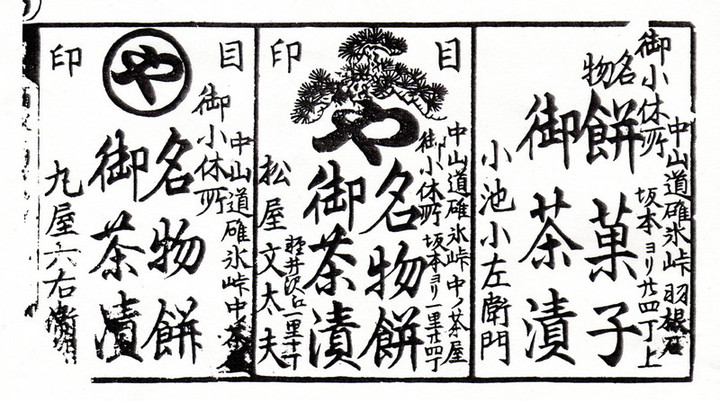 中山道碓氷峠羽根石
御小休所
坂本ヨリ廿四丁上
名物
餅菓子
御茶漬
小池小左衛門
目印
や
中山道碓氷峠中ノ茶屋
御小休所
坂本ヨリ一里廿四丁
名物餅
御茶漬
軽井沢江一里十丁
松屋文太夫
目印
や
中山道碓氷峠中ノ茶
御小休所
名物餅
御茶漬
九屋六右衛